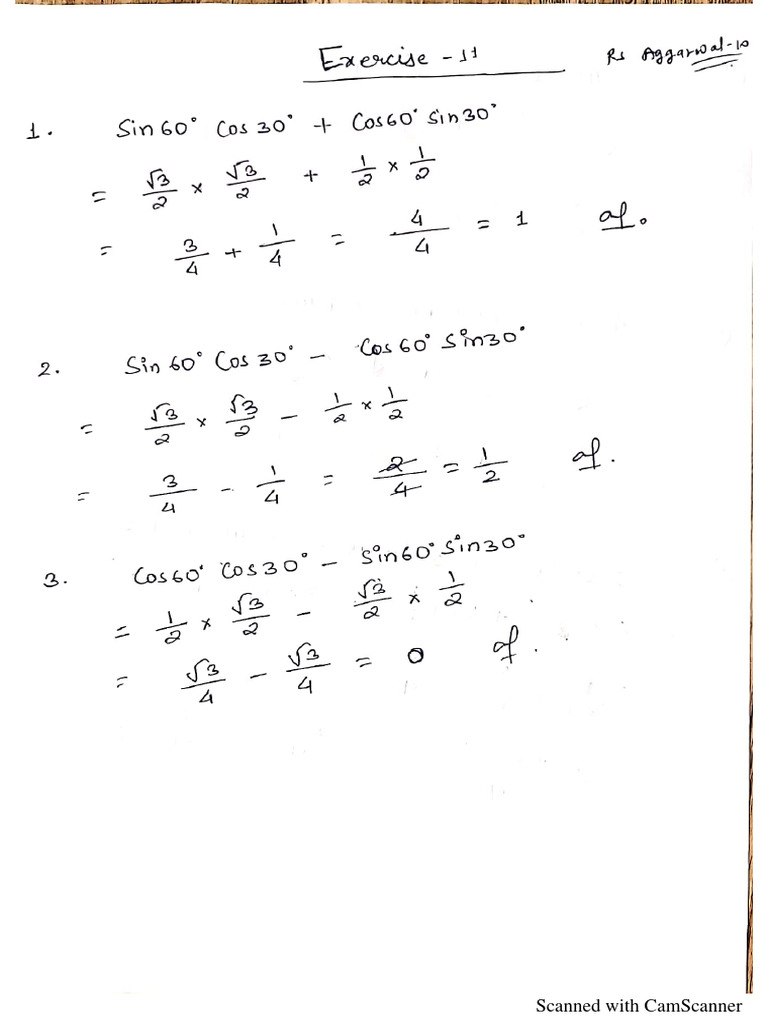 Exercise - 11
Rs Aggarwal-10
1. Sin 60° Cos 30° + Cos60° Sin30°
= √3/2 × √3/2 + 1/2 × 1/2
= 3/4 + 1/4 = 4/4 = 1
2. Sin 60° Cos 30° - Cos60° Sin30°
= √3/2 × √3/2 - 1/2 × 1/2
= 3/4 - 1/4 = 2/4 = 1/2
3. Cos60° Cos30° - Sin60° Sin30°
= 1/2 × √3/2 - √3/2 × 1/2
= √3/4 - √3/4 = 0
Scanned with CamScanner